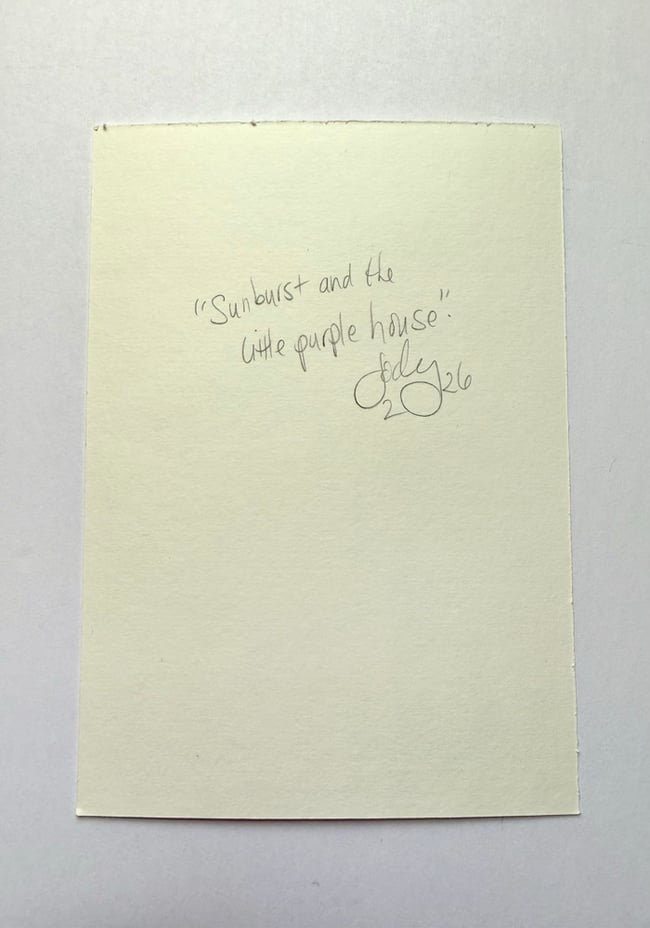 "Sunburst and the
little purple house".
Jody
2026